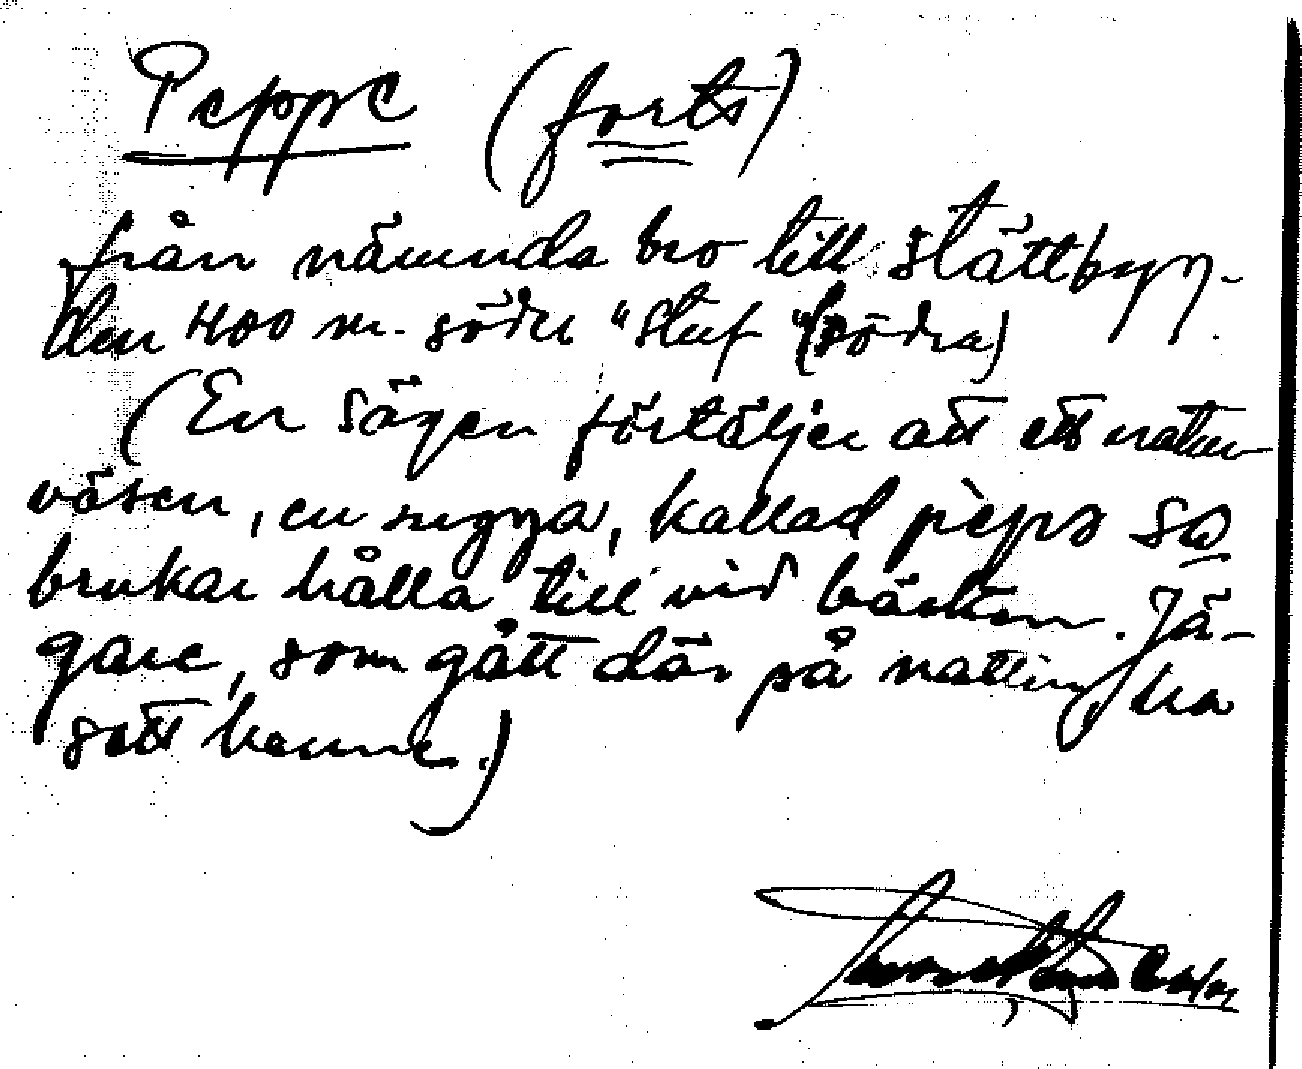 Peppe (forts)
från nämnda bro till slättbyg-
den 400 m. söder "Stuf" (södra)
(En sägen förtäljer att ett natur
väsen, en nugga, kallad pèps so
brukar hålla till vid bäcken. Jä-
gare, som gått där på natting ha
sett henne.)